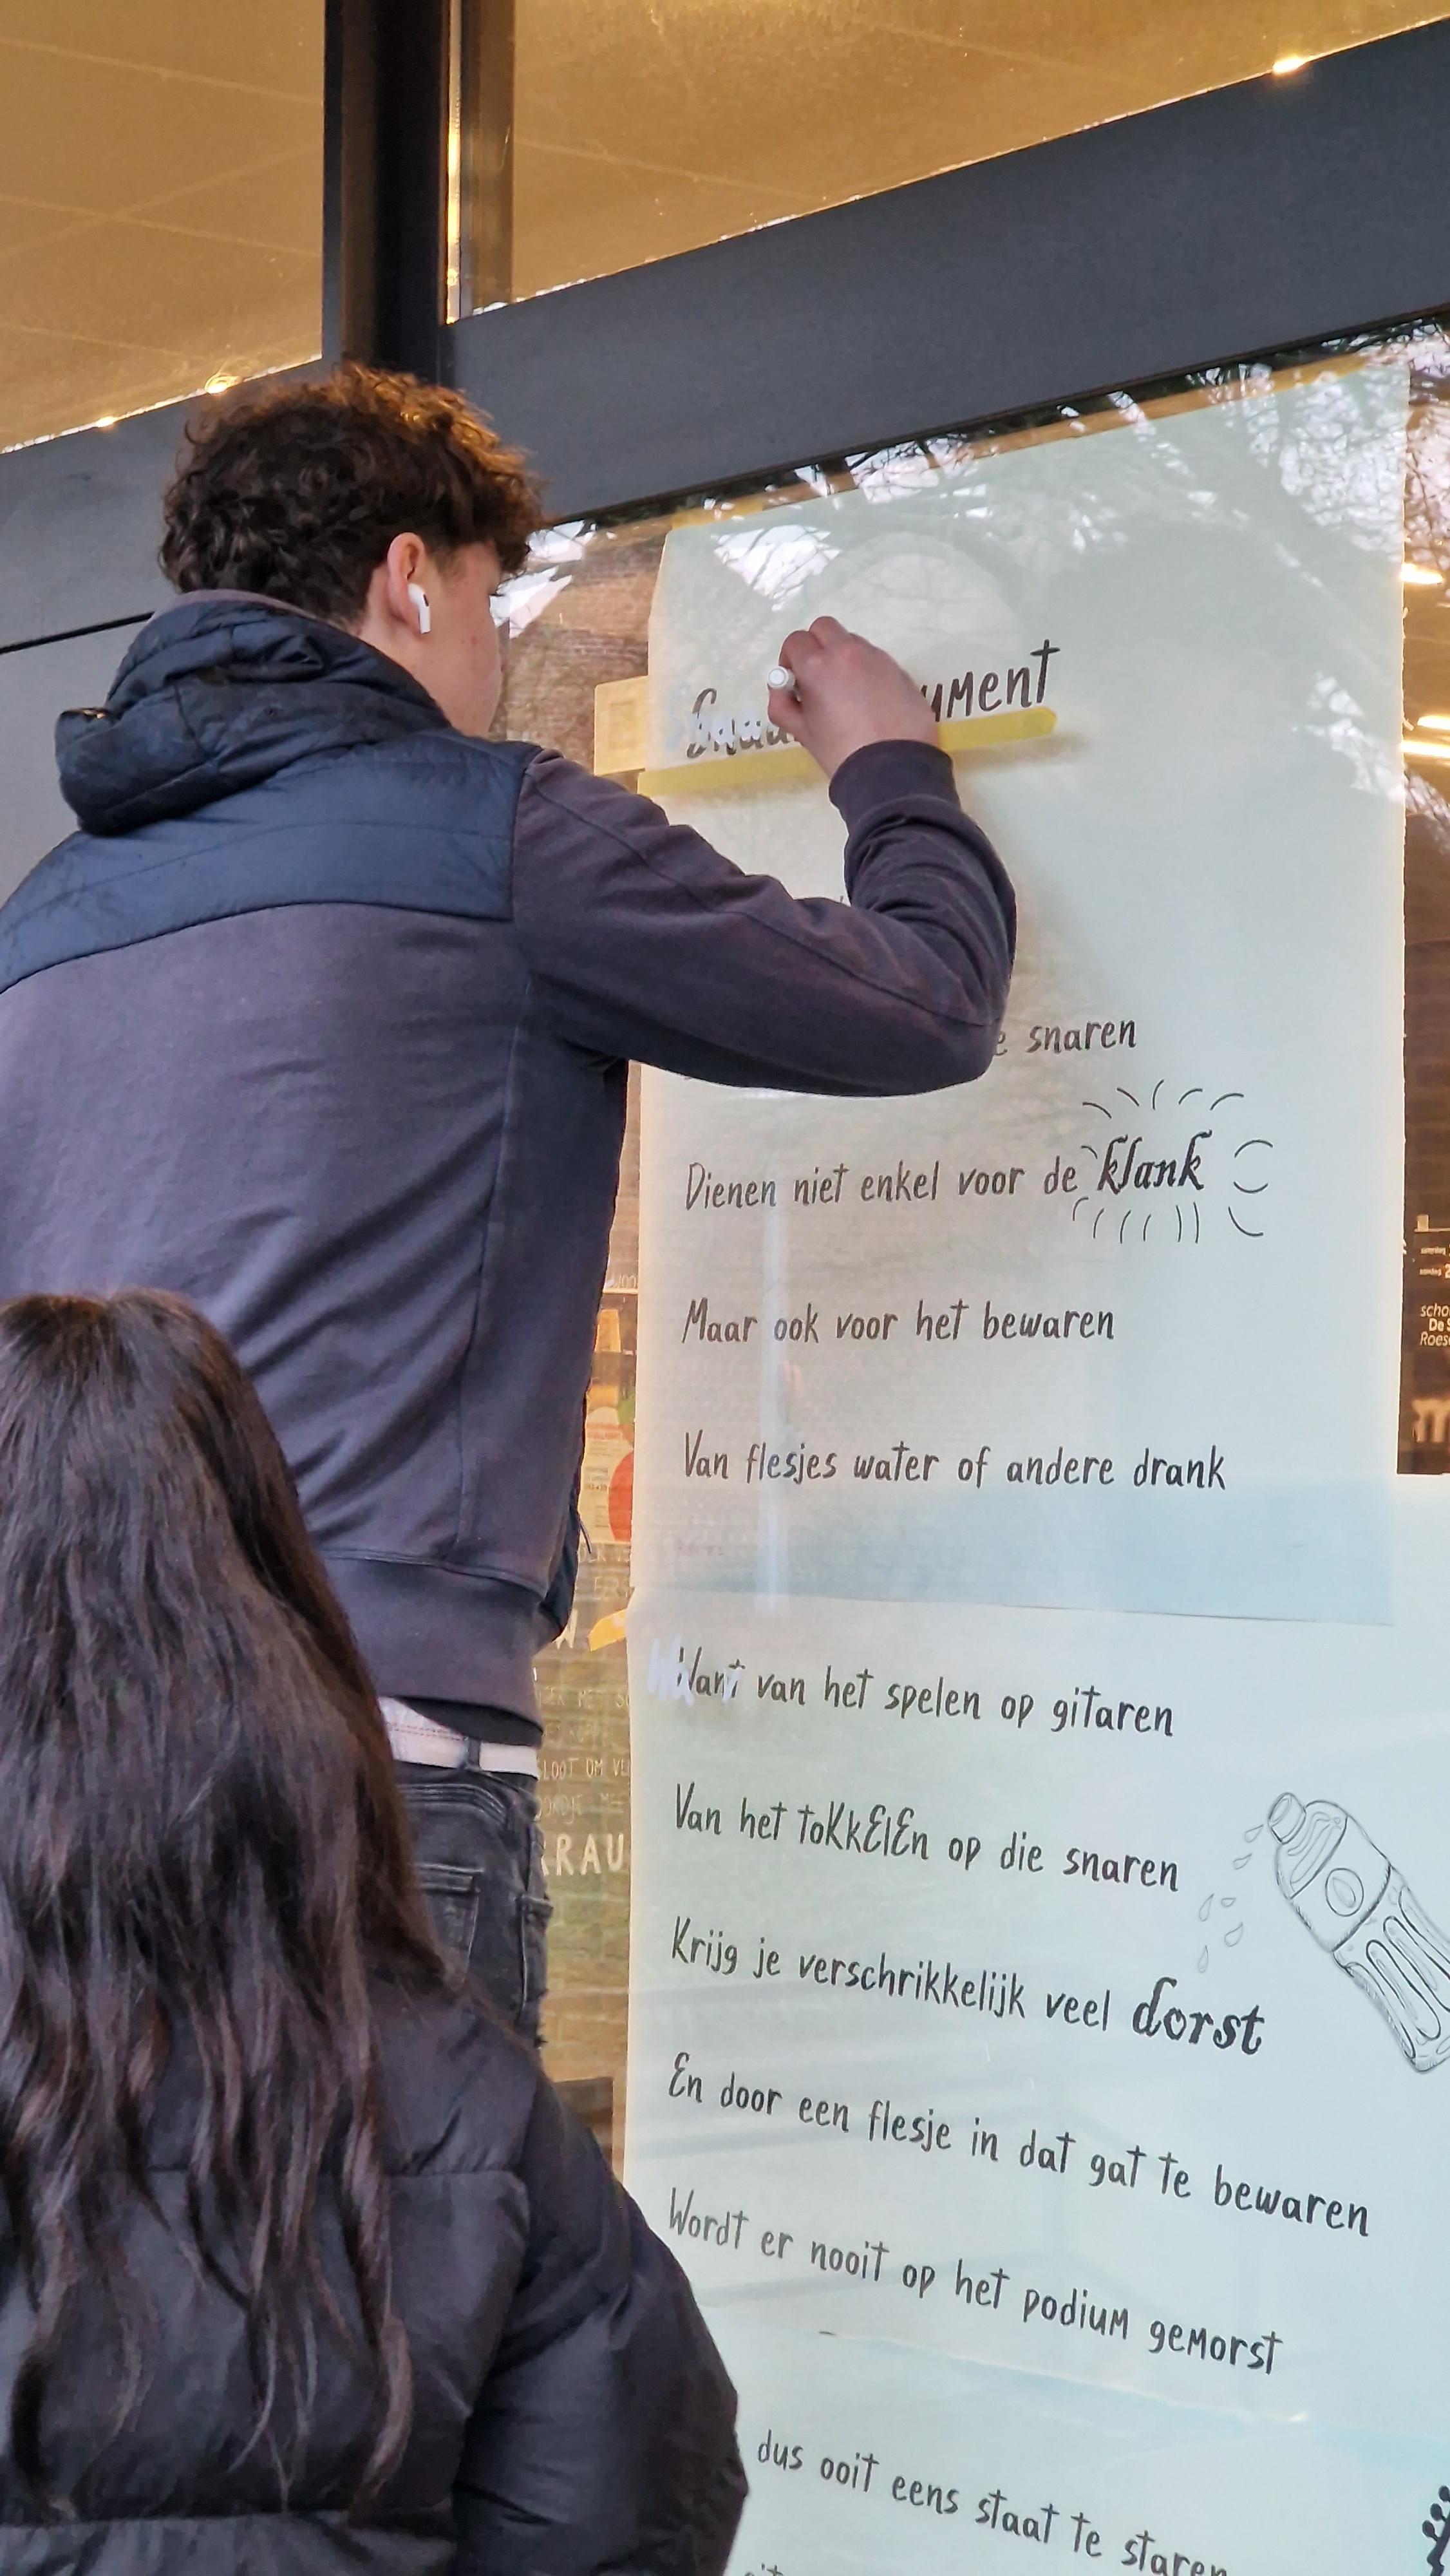 snaren
Dienen niet enkel voor de klank
Maar ook voor het bewaren
Van flesjes water of andere drank
Want van het spelen op gitaren
Van het toKkElEn op die snaren
Krijg je verschrikkelijk veel dorst
En door een flesje in dat gat te bewaren
Wordt er nooit op het podium gemorst
dus ooit eens staat te staren